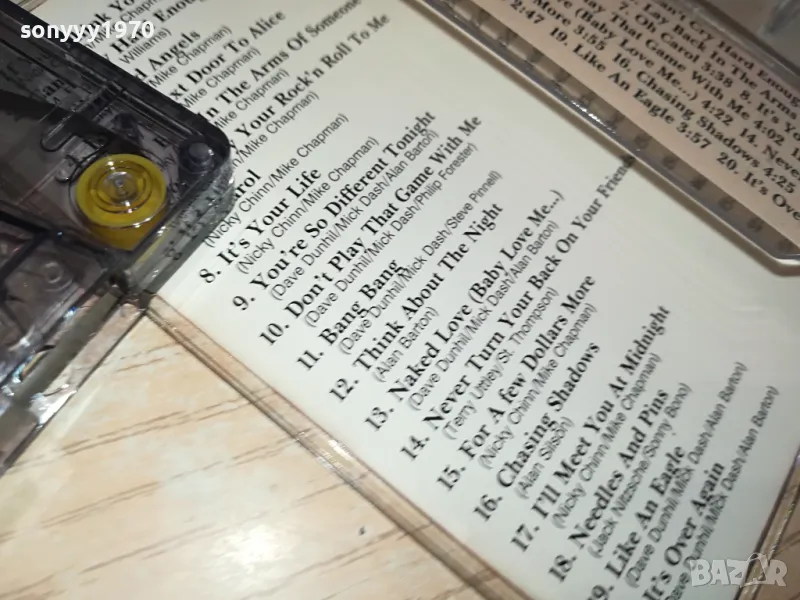 sonyyy1970
Angels
Mike Chapman)
xt Door To Alice
Mike Chapman)
The Arms Of Someone
/Mike Chapman)
Your Rock'n Roll To Me
/Mike Chapman)
rol
(Nicky Chinn/Mike Chapman)
8. It's Your Life
(Nicky Chinn/Mike Chapman)
9. You're So Different Tonight
(Dave Dunhill/Mick Dash/Alan Barton)
10. Don't Play That Game With Me
(Dave Dunhill/Mick Dash/Philip Forester)
11. Bang Bang
(Dave Dunhill/Mick Dash/Steve Pinnell)
12. Think About The Night
(Alan Barton)
13. Naked Love (Baby Love Me...)
(Dave Dunhill/Mick Dash/Alan Barton)
14. Never Turn Your Back On Your Friends
(Terry Uttley/St. Thompson)
15. For A few Dollars More
(Nicky Chinn/Mike Chapman)
16. Chasing Shadows
(Alan Silson)
17. I'll Meet You At Midnight
(Nicky Chinn/Mike Chapman)
18. Needles And Pins
(Jack Nitzsche/Sonny Bono)
19. Like An Eagle
(Dave Dunhill/Mick Dash/Alan Barton)
It's Over Again
Dunhill/Mick Dash/Alan Barton)
an't Cry Hard Enough
Lay Back In The Arms
7. Oh Carol 3:38 8. It's Yo
lay That Game With Me 4:02
2:47
(Baby Love Me...) 4:22 14. Never
More 3:55 16. Chasing Shadows 4:25
19. Like An Eagle 3:57 20. It's Over
BAZAR